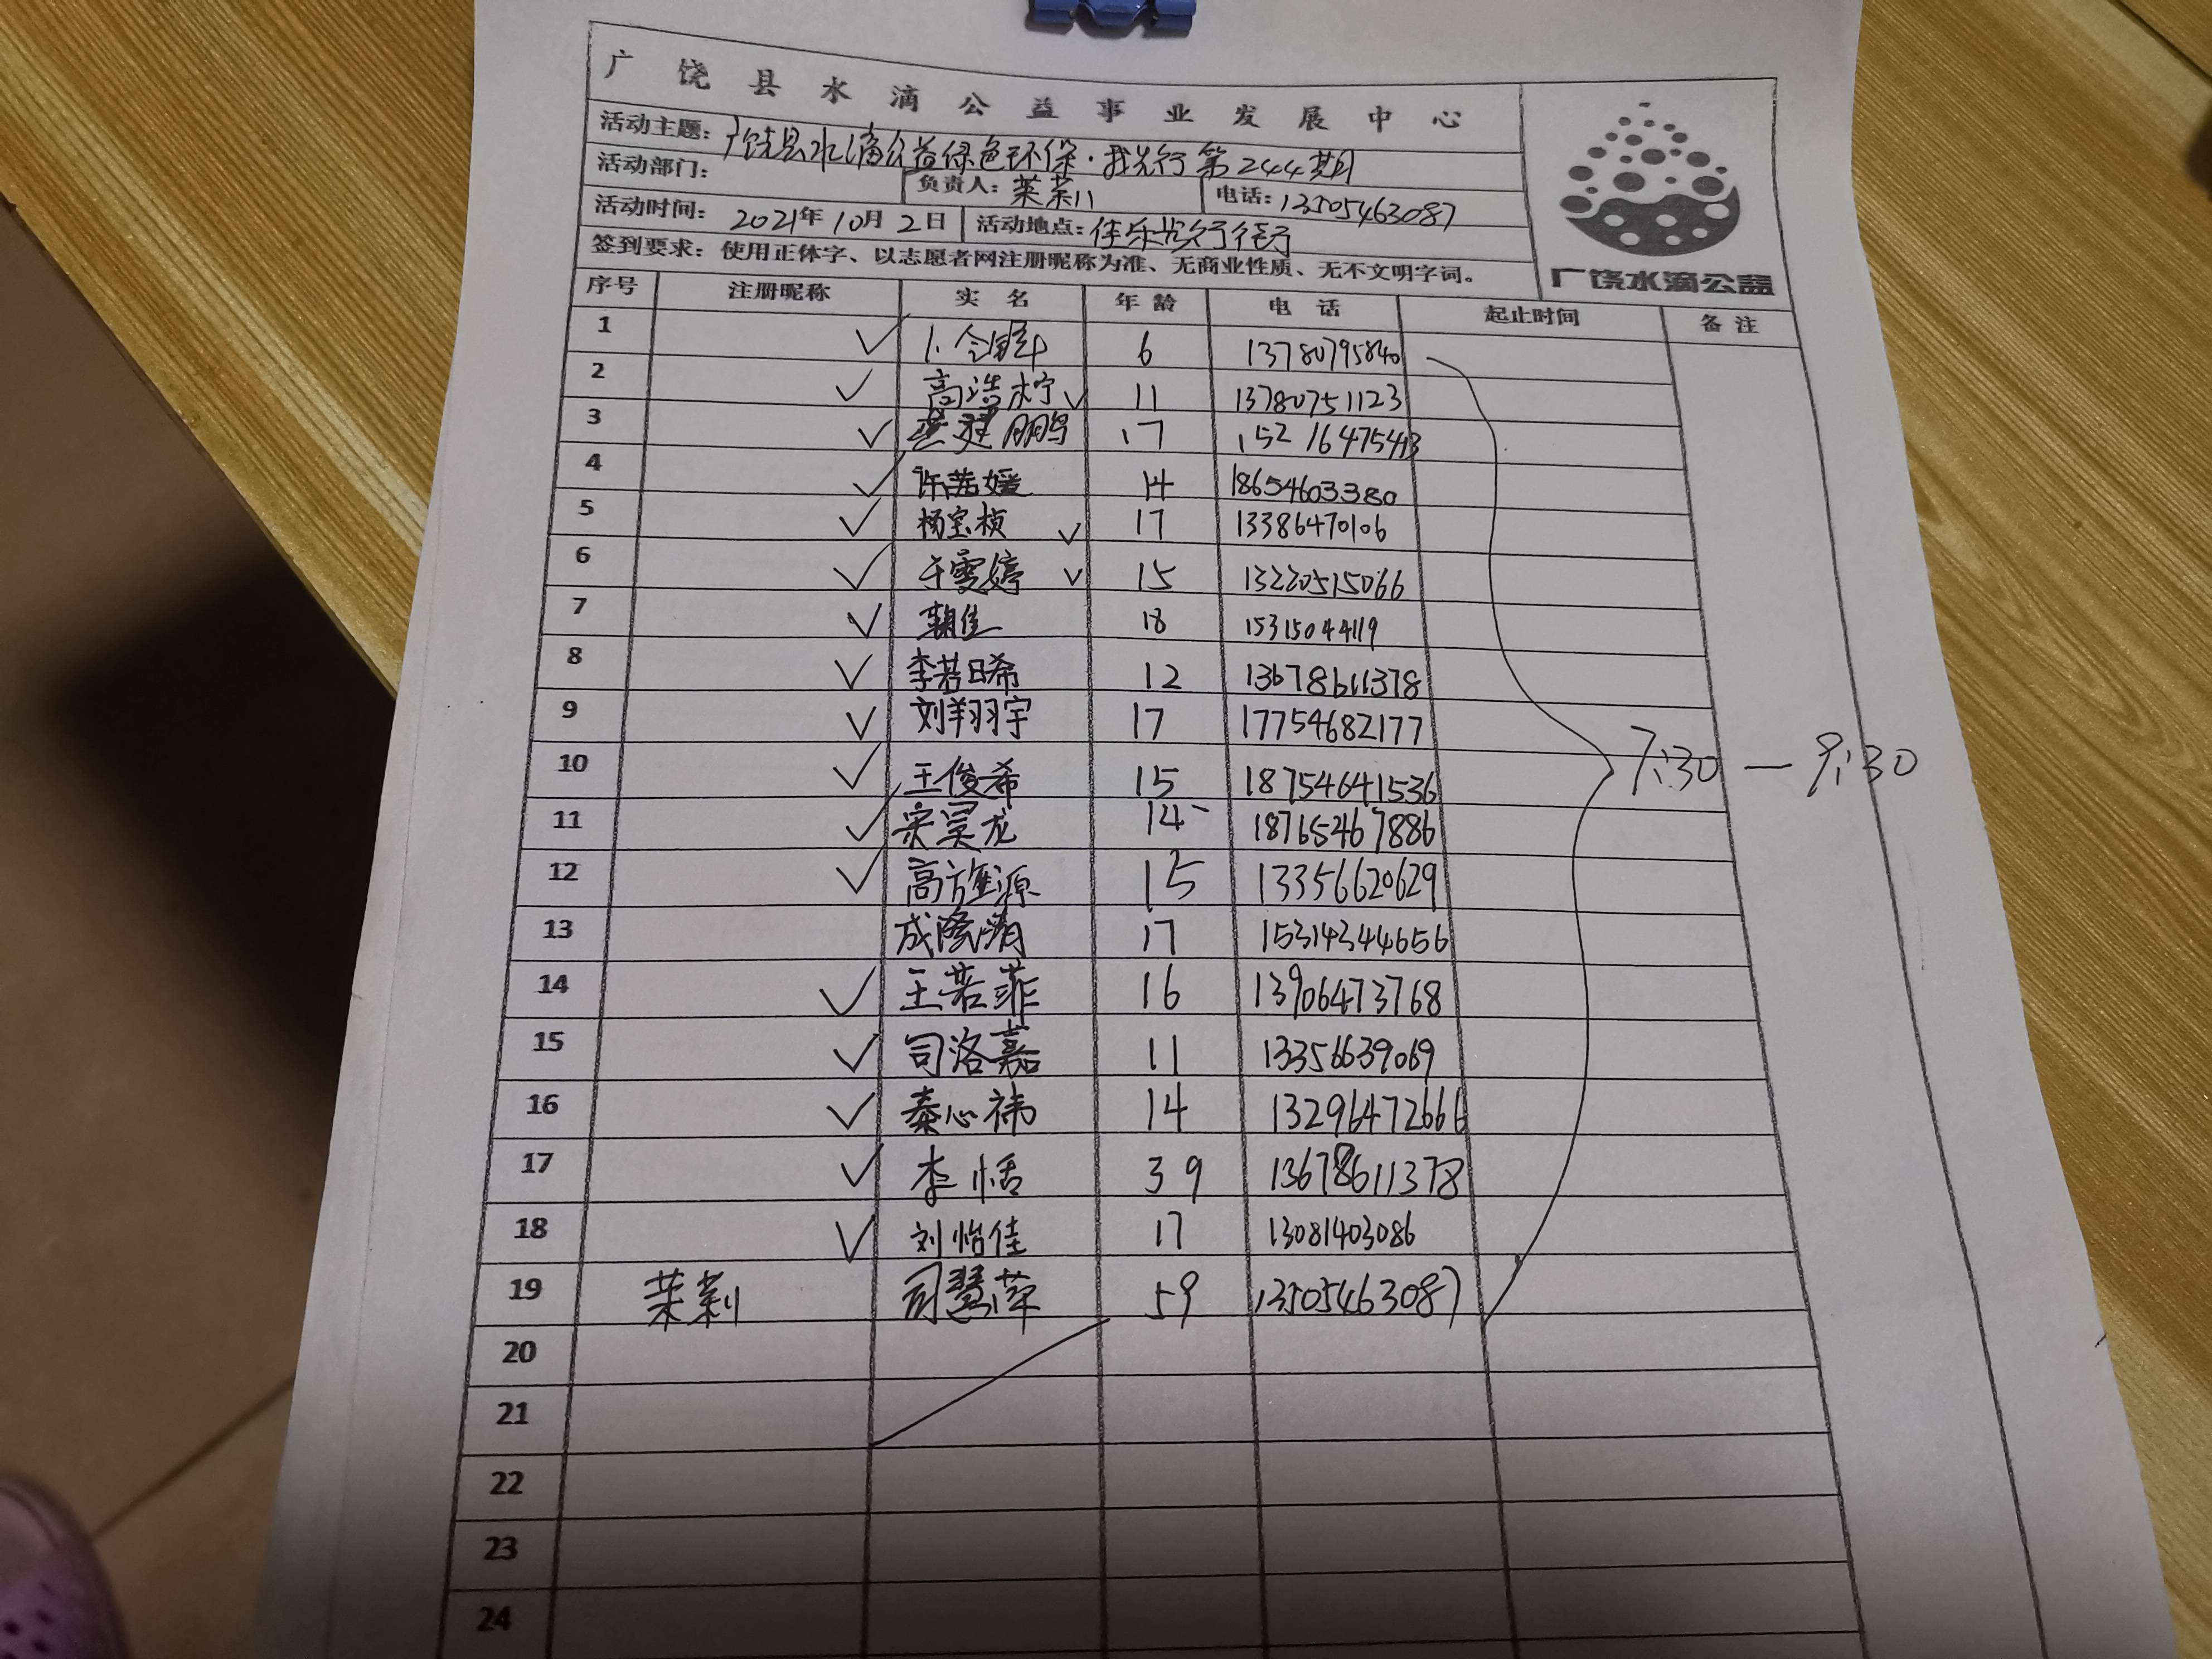 广饶县水滴公益事业发展中心
活动主题：广饶县水滴公益绿色环保·我先行第244期
活动部门： 负责人： 电话：13505463087
活动时间：2021年10月2日 活动地点：佳乐步行街
签到要求：使用正体字、以志愿者网注册昵称为准、无商业性质、无不文明字词。
广饶水滴公益
序号 注册昵称 实名 年龄 电话 起止时间 备注
1 ✓ 6 13780795840
2 ✓ 高浩柠 ✓ 11 13780751123
3 ✓ 17 15216475413
4 ✓ 许茜媛 14 18654603380
5 ✓ 杨宝桢 ✓ 17 13386470106
6 ✓ 于雯婷 ✓ 15 13220515066
7 ✓ 18 15315044119
8 ✓ 李若晞 12 13678611378
9 ✓ 刘翔宇 17 17754682177
10 ✓ 王俊希 15 18754641536
7:30 — 9:30
11 ✓ 宋昊龙 14 18765467886
12 ✓ 高旌源 15 13356620629
13 17 15314344656
14 ✓ 王若菲 16 13906473768
15 ✓ 司洛嘉 11 13356639069
16 ✓ 秦心祎 14 13296472666
17 ✓ 李恬 39 13678611378
18 ✓ 刘怡佳 17 13081403086
19 茉莉 司慧萍 59 13505463087
20
21
22
23
24